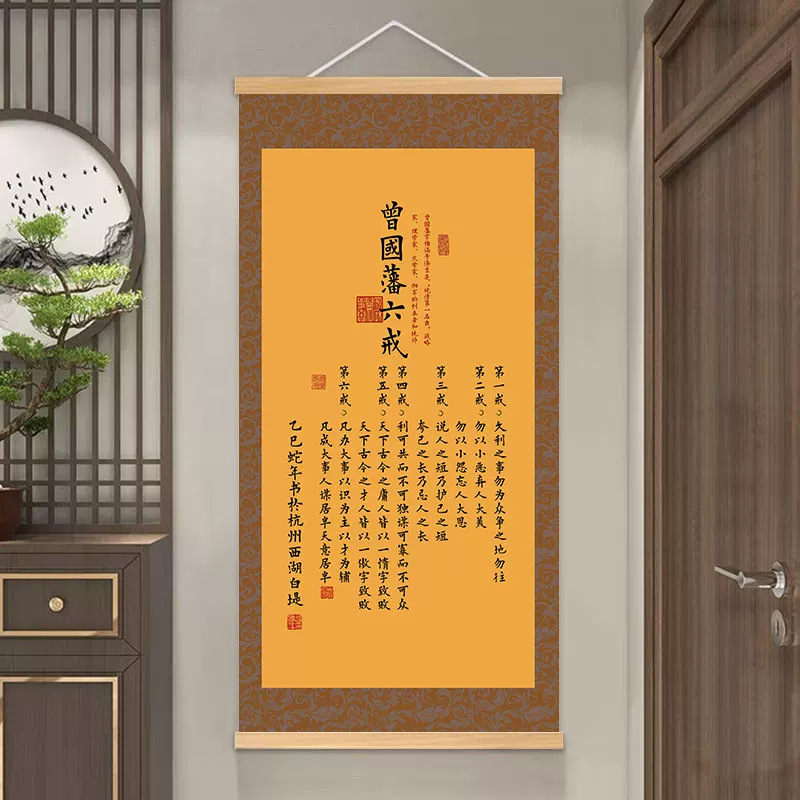 曾国藩字伯涵号涤生是，晚清第一名臣，战略
家、理学家、文学家、湘军的创立者和统帅
曾國藩六戒
第一戒：久利之事勿为众争之地勿往
第二戒：勿以小恶弃人大美
勿以小怨忘人大恩
第三戒：说人之短乃护己之短
夸己之长乃忌人之长
第四戒：利可共而不可独谋可寡而不可众
第五戒：天下古今之庸人皆以一惰字致败
天下古今之才人皆以一傲字致败
第六戒：凡办大事以识为主以才为辅
凡成大事人谋居半天意居半
乙巳蛇年书於杭州西湖白堤